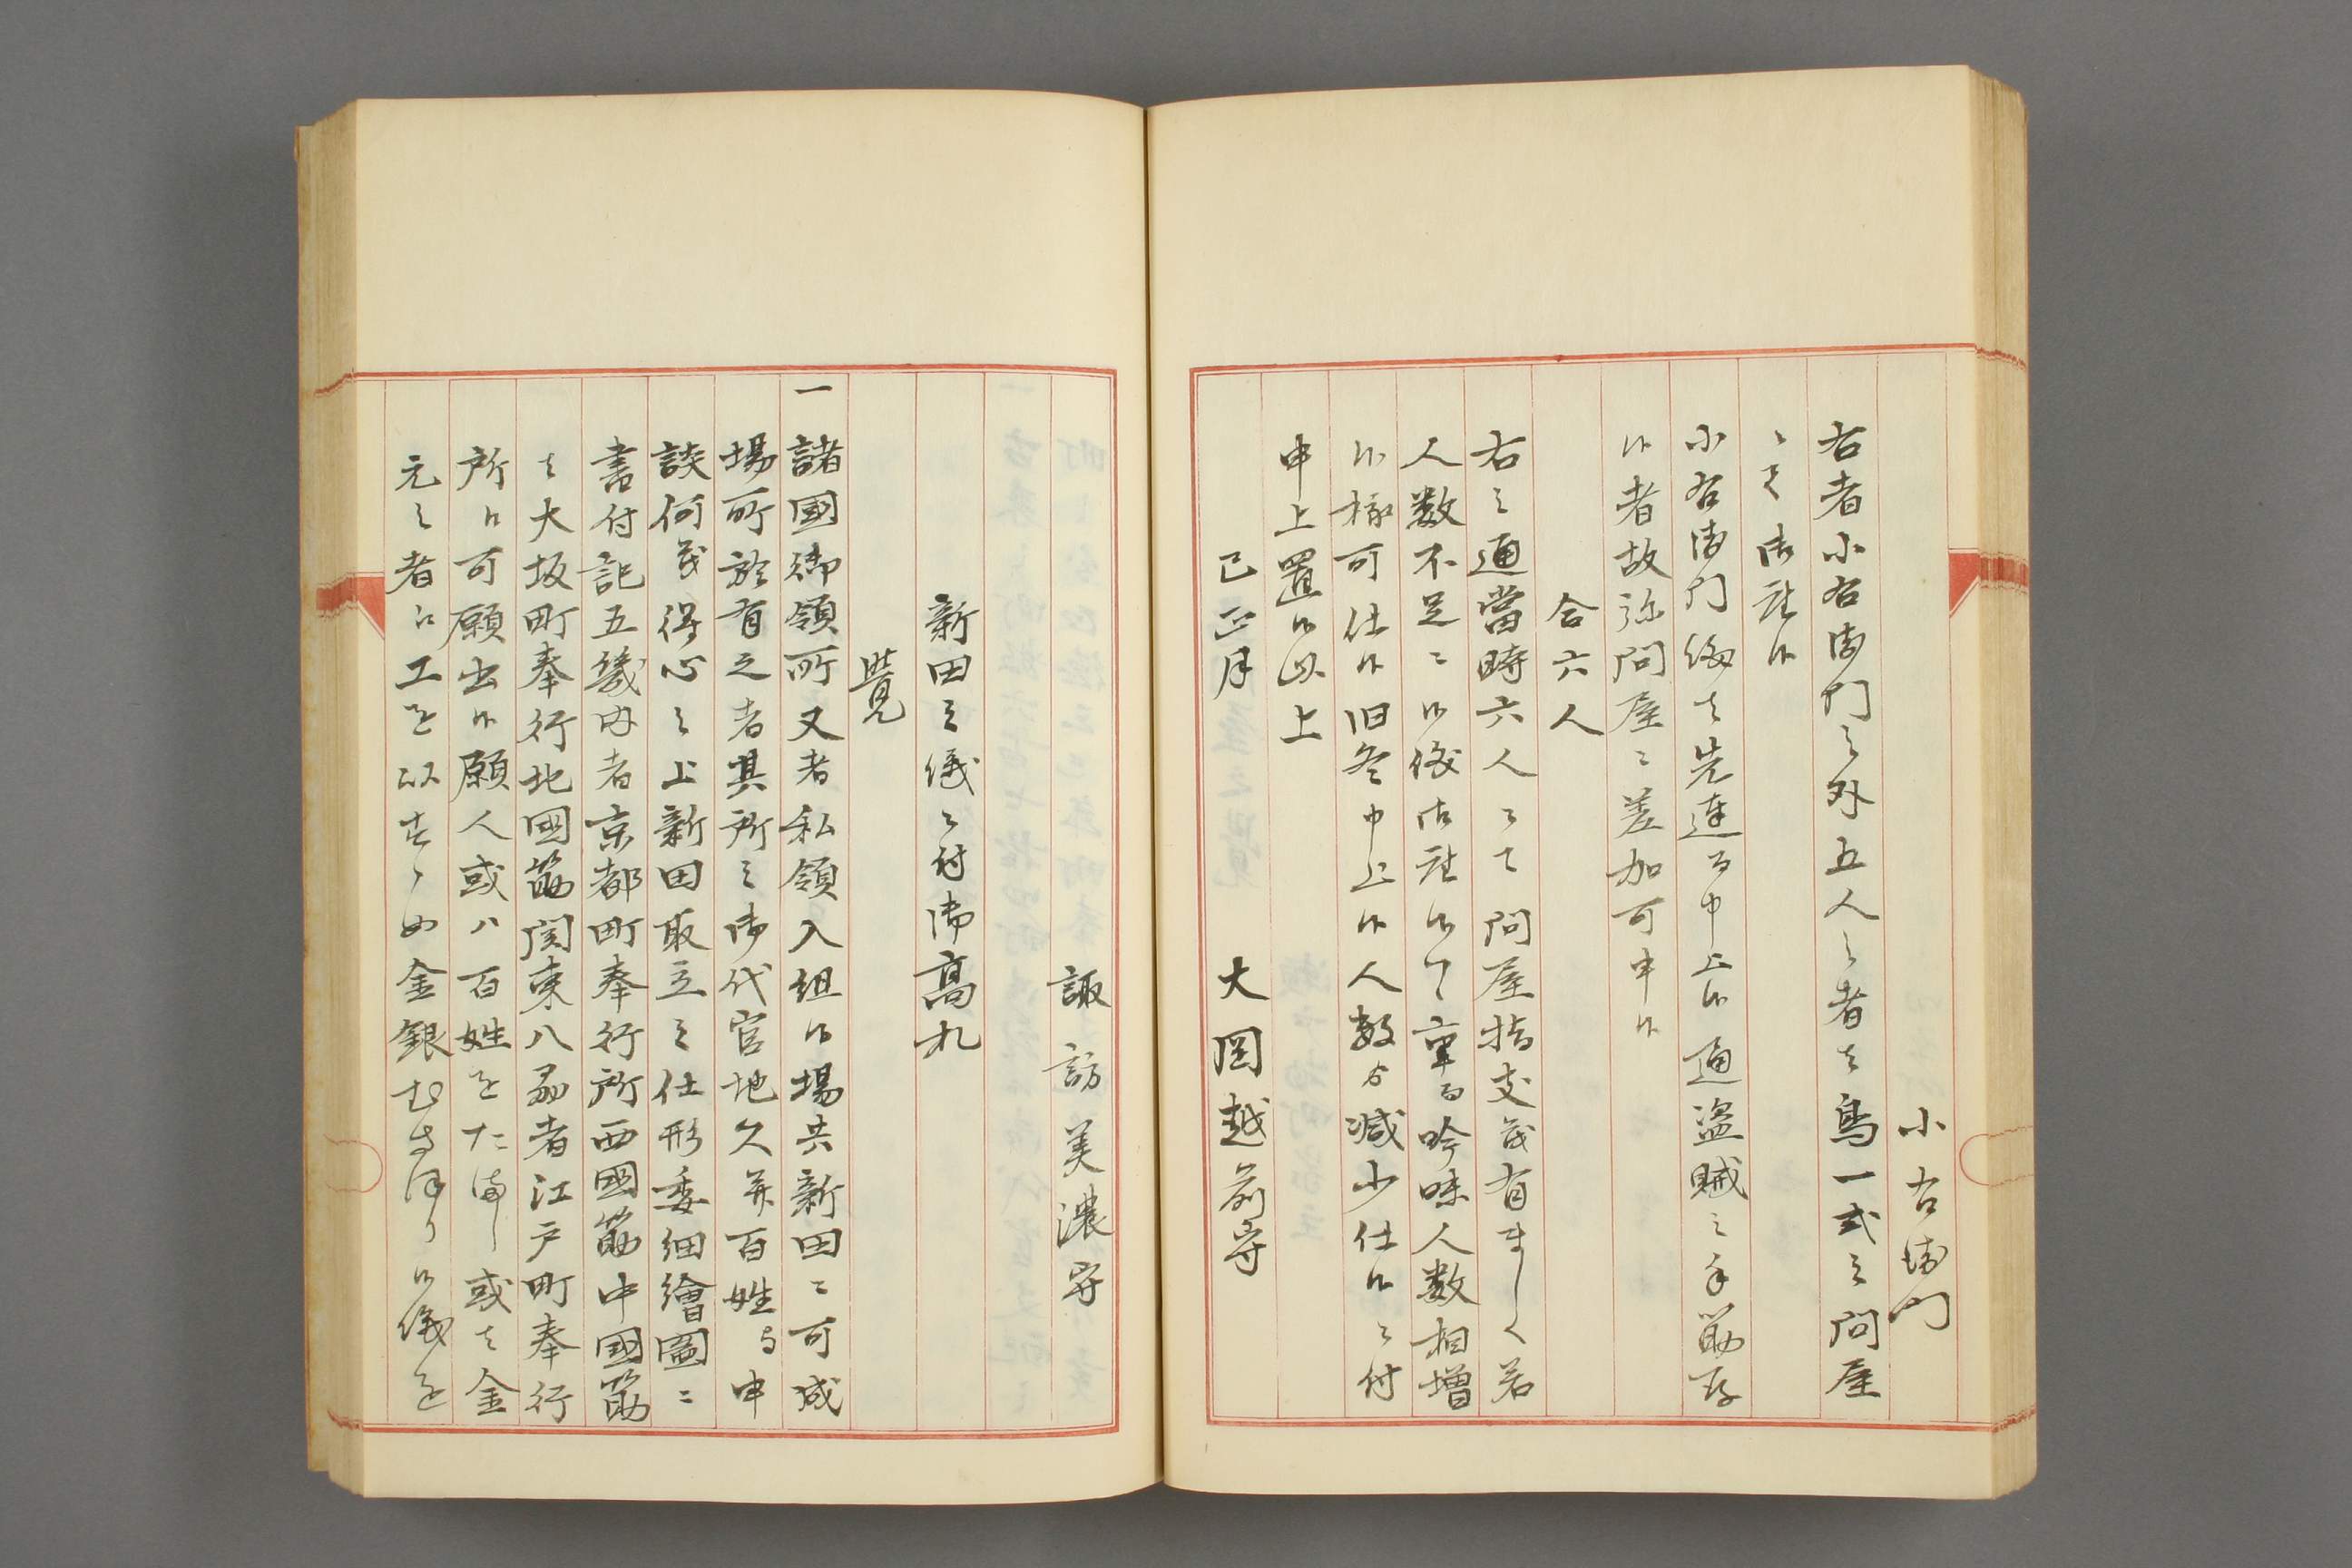 小右衛門
右者小右衛門之外五人之者は鳥一式之問屋
ニて御座候
小右衛門儀は先達而申上候通盗賊之手筋存
候者故弥問屋ニ差加可申候
合六人
右之通當時六人ニて問屋指支茂有ましく若
人数不足ニ候後御座候ハヽ重而吟味人数相増
候様可仕候旧冬申上候人数ゟ減少仕候ニ付
申上置候以上
巳正月　大岡越前守
諏訪美濃守
新田之儀ニ付御高札
覺
一諸國御領所又者私領入組候場共新田ニ可成
場所於有之者其所之御代官地久并百姓与申
談何茂得心之上新田取立之仕形委細繪圖ニ
書付記五畿内者京都町奉行所西國筋中國筋
は大坂町奉行北國筋関東八刕者江戸町奉行
所江可願出候願人或ハ百姓をたまし或は金
元之者江工を以すゝめ金銀むさほり候儀を